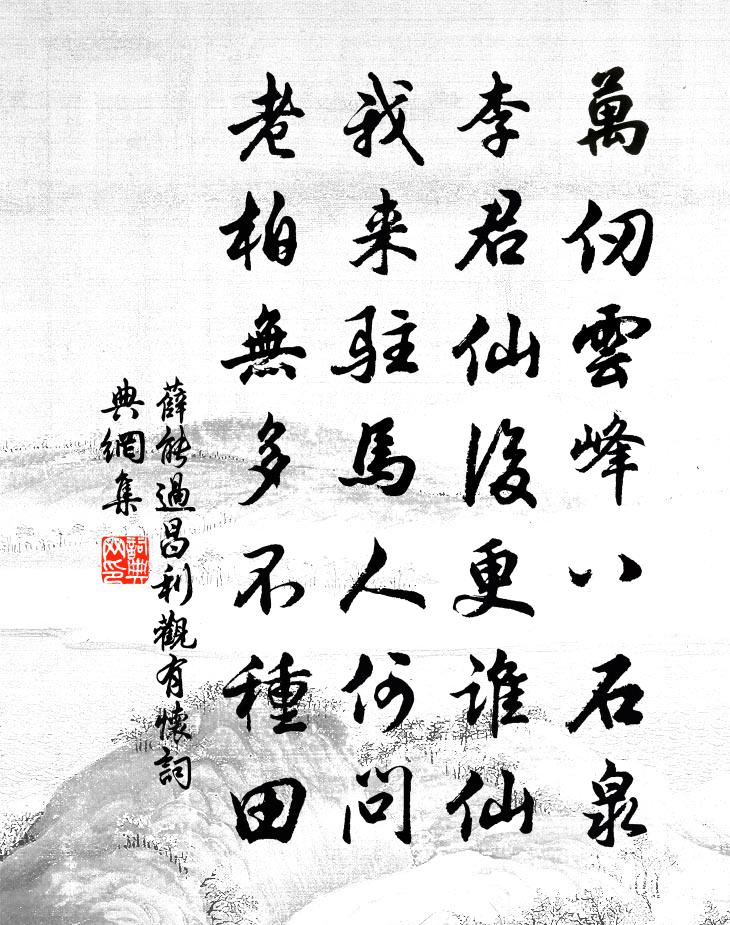 萬仞雲峰八石泉
李君仙後更誰仙
我来駐馬人何問
老柏無多不種田
薛能過昌利觀有懷詞
典網集
詞典
网印